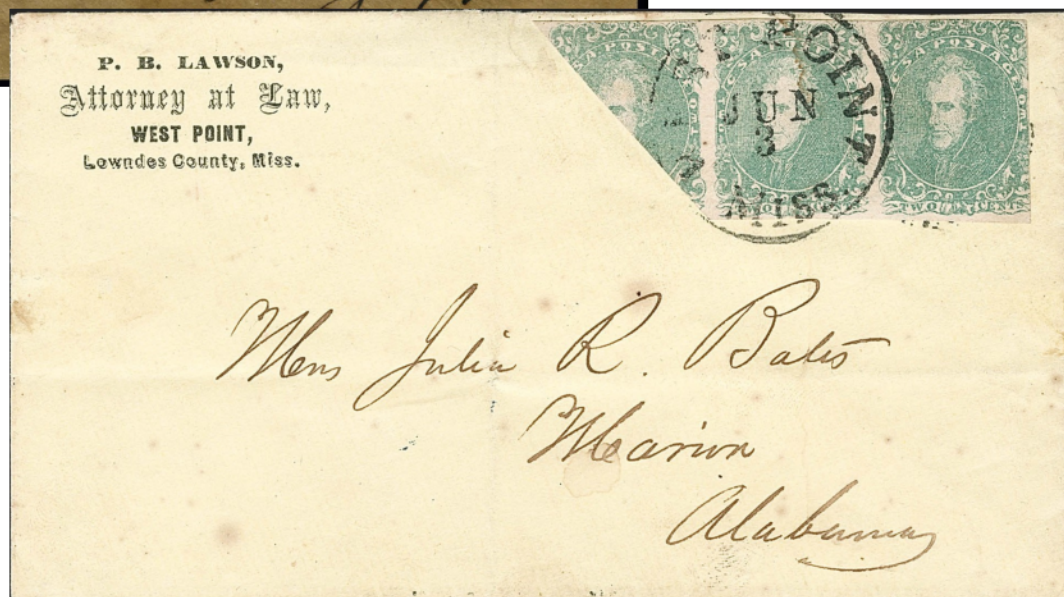 P. B. LAWSON,
Attorney at Law,
WEST POINT,
Lowndes County, Miss.
POINT
JUN
3
MISS.
CSA POSTAGE
TWO CENTS
Mrs Julia R. Bates
Marion
Alabama